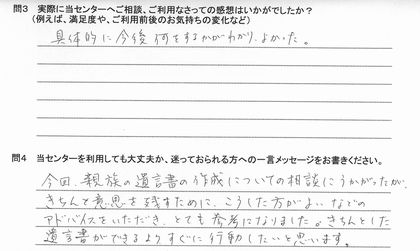 問3 実際に当センターへご相談、ご利用なさっての感想はいかがでしたか?
(例えば、満足度や、ご利用前後のお気持ちの変化など)
具体的に今後何をするかがわかり、よかった。
問4 当センターを利用しても大丈夫か、迷っておられる方への一言メッセージをお書きください。
今回、親族の遺言書の作成についての相談にうかがったが、
きちんと意思を残すために、こうした方がよいなどの
アドバイスをいただき、とても参考になりました。きちんとした
遺言書ができるようすぐに行動したいと思います。